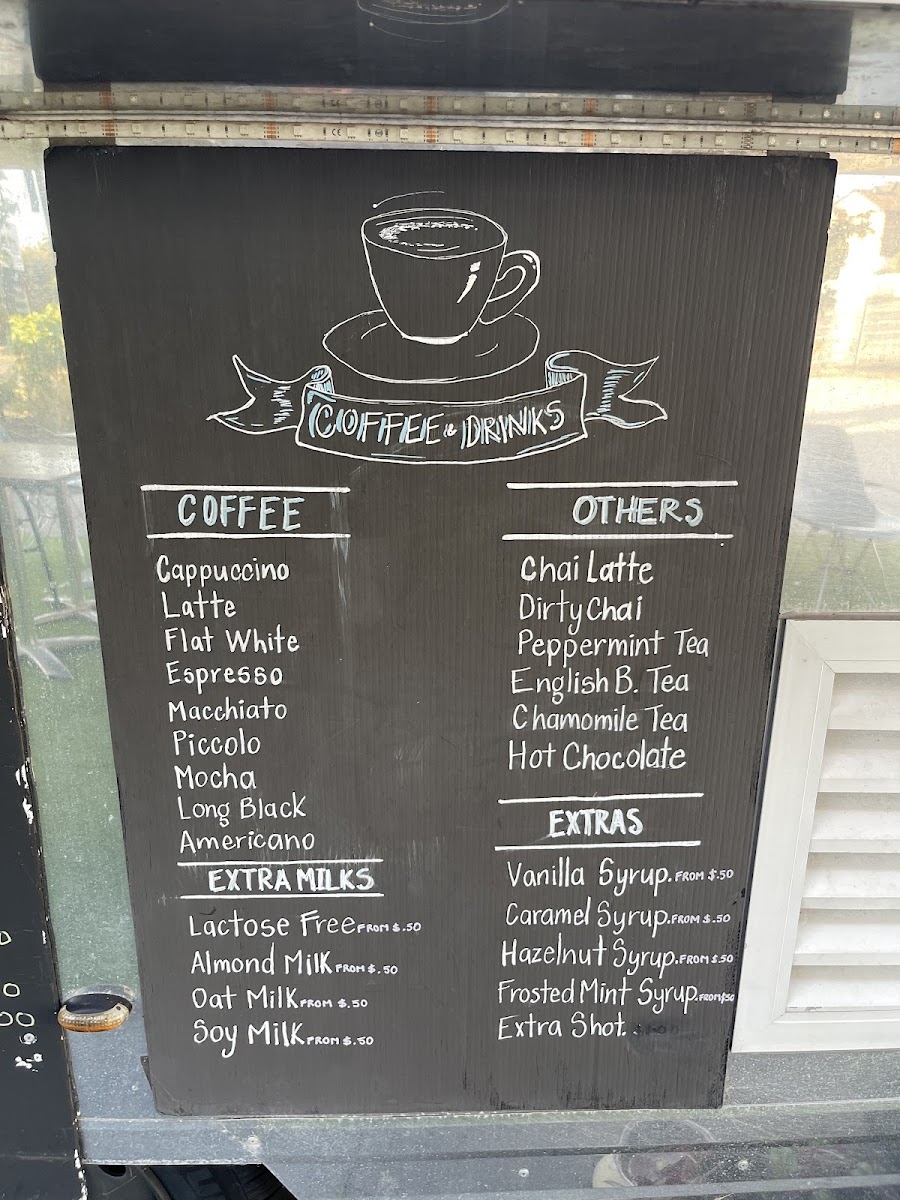 COFFEE & DRINKS
COFFEE
Cappuccino
Latte
Flat White
Espresso
Macchiato
Piccolo
Mocha
Long Black
Americano
EXTRA MILKS
Lactose Free FROM $.50
Almond Milk FROM $.50
Oat Milk FROM $.50
Soy Milk FROM $.50
OTHERS
Chai Latte
Dirty Chai
Peppermint Tea
English B. Tea
Chamomile Tea
Hot Chocolate
EXTRAS
Vanilla Syrup. FROM $.50
Caramel Syrup. FROM $.50
Hazelnut Syrup. FROM $.50
Frosted Mint Syrup. FROM $.50
Extra Shot.